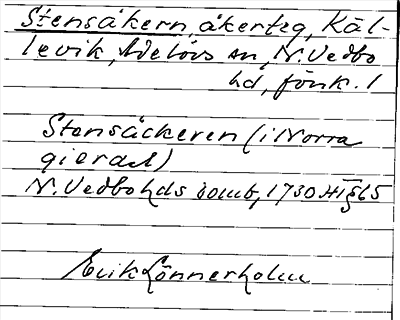 Stensåkern, åkerteg, Käl-
levik, Adelövs sn, N. Vedbo
hd, Jönk. l
Stensäckeren (i Norra
gierdet)
N. Vedbo hds domb, 1730 HT § 65
Erik Lönnerholm